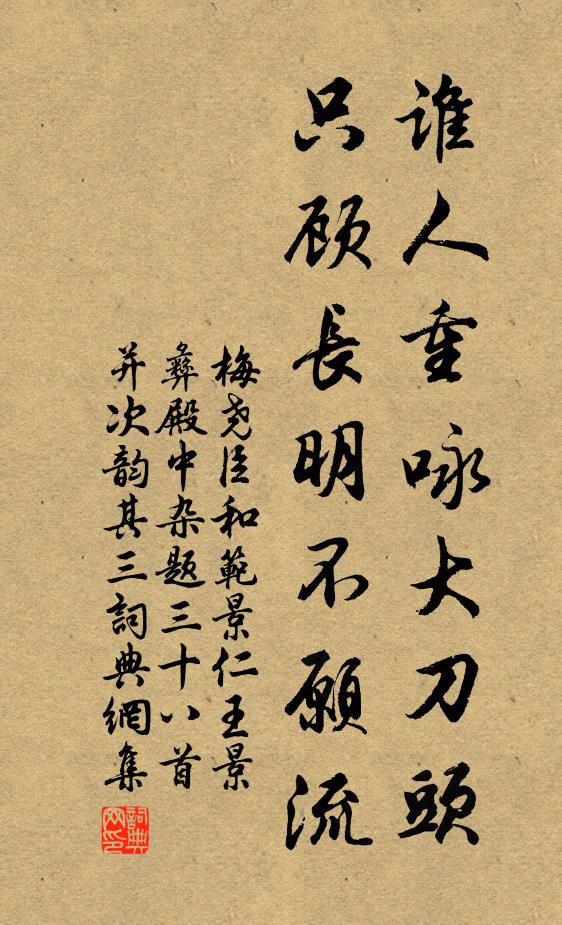 誰人重咏大刀頭
只顾長明不願流
梅尧臣和範景仁王景
彝殿中杂题三十八首
并次韵其三詞典網集
詞典
网印